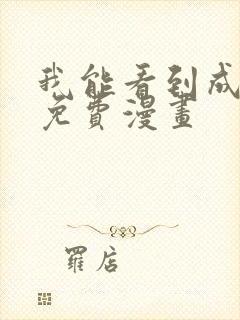 我能看到成
免費漫畫
羅店